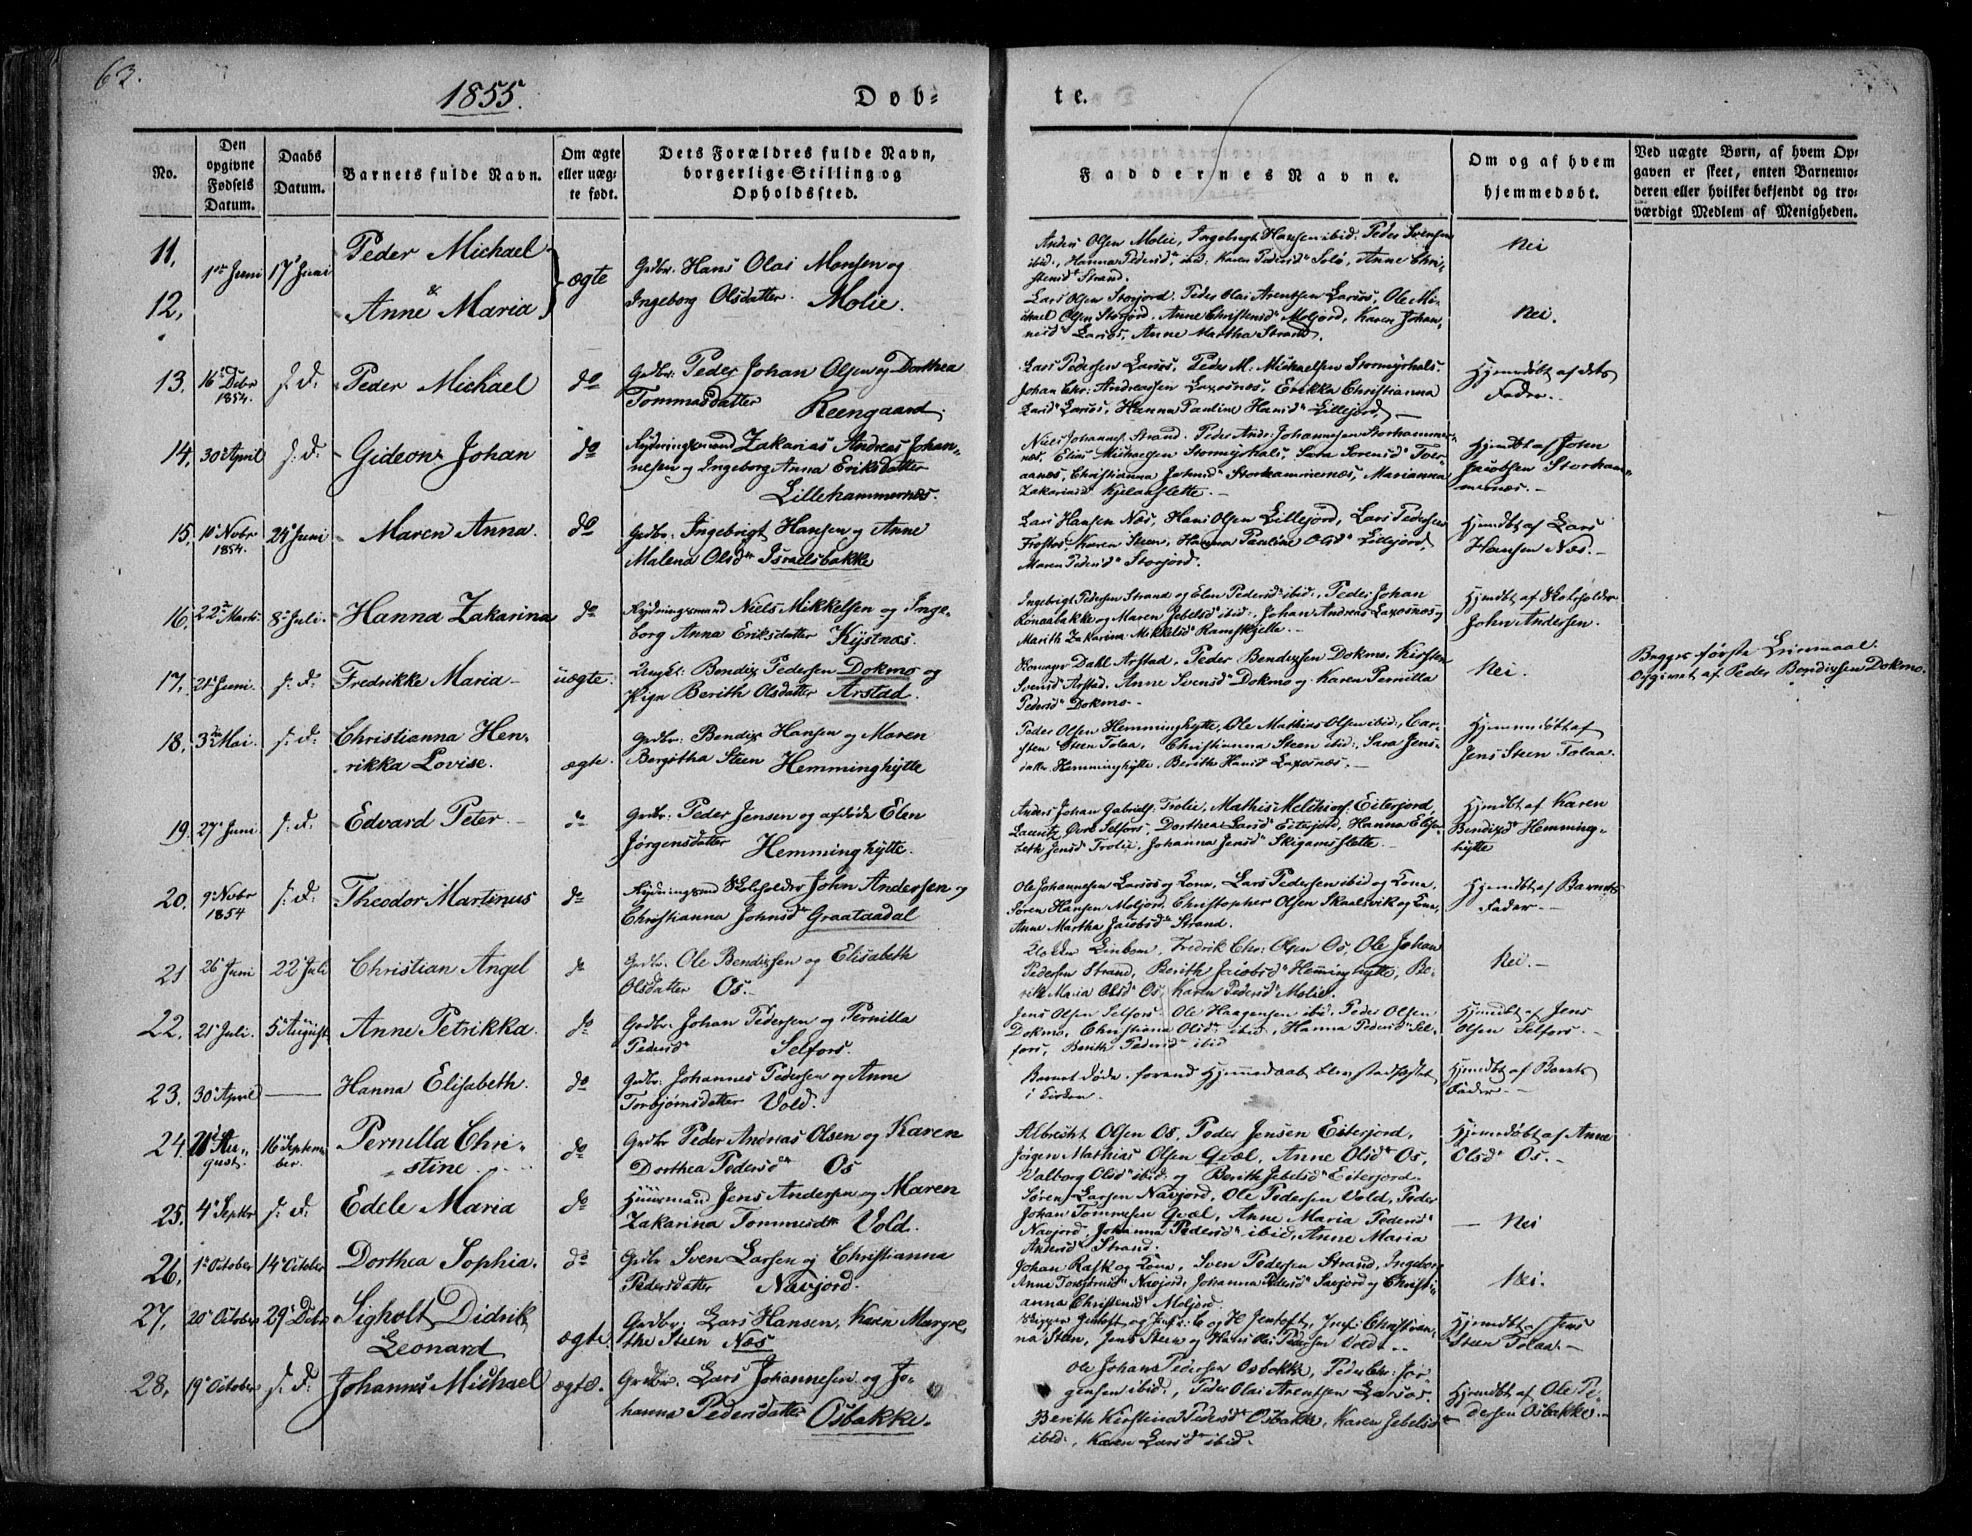 63.
1855.
Døb=
te.
No.
Den opgivne Fødsels Datum.
Daabs Datum.
Barnets fulde Navn.
Om ægte eller uægte født.
Dets Forældres fulde Navn, borgerlige Stilling og Opholdssted.
Faddernes Navne.
Om og af hvem hjemmedøbt.
Ved uægte Børn, af hvem Op=
gaven er skeet, enten Barnemo=
deren eller hvilket bekjendt og tro=
værdigt Medlem af Menigheden.
11.
Peder Michael
12.
&
Anne Maria
1ste Juni 17de Juni
ægte
Grdbr. Hans Olai Monsen og
Ingeborg Olsdatter. Molie.
Anders Olsen Molie, Ingebrigt Hansen ibid: Peder Svensen
ibid:, Hanna Pedersd. ibid: Karen Pedersd. Solö, Anne Chri-
stensd. Strand.
Nei
Lars Olsen Storjord. Peder Olai Arentsen Larsos, Ole Mi-
chael Olsen Storjord, Anne Christensd. Moljord, Karen Johan-
nesd. Larsos, Anne Martha Strand.
Nei.
13. 16 Debr 1854. s. D. Peder Michael do
Grdbr: Peder Johan Olsen og Dorthea
Tommasdatter Reengaard.
Lars Pedersen Larsos, Peder M. Michaelsen Stormyrhals.
Johan Chr: Andreassen Laxosnæs, Erikka Christianna
Larsd. Larsos, Hanna Pauline Hansd. Lillejord.
Hjemdøbt af dets
Fader.
14. 30 April s. D. Gideon Johan do
Rydningsmand Zakarias Andreas Johan-
nesen og Ingeborg Anna Eriksdatter
Lillehammernæs.
Niels Johannes. Strand. Peder Andr: Johannesen Storhammer-
næs, Elias Michaelsen Stormyrhals, Sara Sørensd. Tver-
aanæs, Christianna Johnsd. Storhammernæs, Marianna
Zakariasd. Kjelanslette.
Hjemdbt af John
Jacobsen Storham-
mernæs.
15. 10 Novbr 1854. 24 Juni Maren Anna. do
Grdbr: Ingebrigt Hansen og Anne
Malena Olsd. Israelsbakke
Lars Hansen Næs, Hans Olsen Lillejord, Lars Pedersen
Frostos, Karen Steen, Hanna Pauline Olsd. Lillejord,
Maren Pedersd. Storjord.
Hjemdbt af Lars
Hansen Næs.
16. 22 Marts. 8 Juli. Hanna Zakarina do
Rydningsmand Niels Mikkelsen og Inge-
borg Anna Eriksdatter Kystnæs.
Ingebrigt Pedersen Strand og Elen Pedersd. ibid., Peder Johan
Ronaabakke og Maren Jebelsd. ibid:, Johan Andreas Laxosnæs og
Marith Zakarina Mikkelsd. Ramskjelle.
Hjemdbt af Skoleholder
John Andersen.
17. 21 Juni. s. D. Fredrikke Maria uægte.
Ungk: Bendix Pedersen Dokmo og
Pige Berith Olsdatter Arstad.
Dahl Arstad, Peder Bendixsen Dokmo, Kirsten
Svensd. Arstad, Anne Svensd. Dokmo og Karen Pernilla
Pedersd. Dokmo
Nei.
Begges første Leiermaal.
Opgivet af Peder Bendixsen Dokmo.
18. 3 Mai. s. D. Christianna Hen-
rikka Lovise. ægte.
Grdbr: Bendix Hansen og Maren
Bergitha Steen Hemminghytte
Peder Olsen Hemminghytte, Ole Mathias Olsen ibid:, Car-
sten Steen Tolaa, Christianna Steen ibid:, Sara Jens-
datter Hemminghytte, Berith Hansd. Laxosnæs.
Hjemmedøbt af
Jens Steen Tolaa.
19. 27 Juni s. D. Edvard Peter do
Grdbr: Peder Jensen og afdøde Elen
Jørgensdatter Hemminghytte.
Anders Johan Gabriels. Trolie, Mathis Melchiors. Eiterjord,
Lauritz Selfors, Dorthea Larsd. Eiterjord, Hanna Elisa-
beth Jensd. Trolie, Johanna Jensd. Skigamslette.
Hjemdbt af Karen
Bendixd. Hemming-
hytte
20. 9 Novbr 1854 s. D. Theodor Martinus do
Rydningsmd Skoleholder John Andersen og
Christianna Johnsd. Graataadal
Ole Johannesen Larsos og Kone, Lars Pedersen ibid og Kone.
Søren Hansen Moljord, Christopher Olsen Skaalsvik og Kone,
Anne Martha Jacobsd. Strand.
Hjemdbt af Barnets
Fader.
21 26 Juni 22 Juli Christian Angel do
Grdbr. Ole Bendixsen og Elisabeth
Olsdatter Os.
Linbom, Fredrik Chr: Olsen Os, Ole Johan
Pedersen Strand, Berith Jacobsd. Hemminghytte, Be-
rith Maria Olsd. Os, Karen Pedersd. Molie.
Nei.
22. 21 Juli. 5 August Anne Petrikka. do
Grdbr: Johan Pedersen og Pernilla
Pedersd. Selfors.
Jens Olsen Selfors. Ole Haagensen ibid, Peder Olsen
Dokmo, Christiana Olsd. ibid, Hanna Pedersd. Sel-
fors, Berith Pedersd. ibid
Hjemdbt af Jens
Olsen Selfors.
23. 30 April Hanna Elisabeth. do
Grdbr: Johannes Pedersen og Anne
Torbjørnsdatter Vold.
Barnet døde, forend Hjemmedaab blev stadfæstet
i Kirken.
Hjemdbt af Barnets
Fader.
24. August. 16 September. Pernilla Chri-
stine. do
Grdbr Peder Andreas Olsen og Karen
Dorthea Pedersd. Os
Albrecht Olsen Os, Peder Jensen Eiterjord,
Jørgen Mathias Olsen Qvæl, Anne Olsd. Os,
Valborg Olsd. ibid: og Berith Jebelsd. Eiterjord.
Hjemmedøbt af Anne
Olsd. Os.
25. 4 Septbr s. D. Edele Maria do
Huusmand Jens Andersen og Maren
Zakarina Tommesd. Vold.
Søren Larsen Navjord, Ole Pedersen Vold, Peder
Johan Tommesen Qvæl, Anne Maria Pedersd.
Navjord, Johanna Pedersd. ibid, Anne Maria
Andersd. Strand.
Nei
26. 1 October 14 October Dorthea Sophia. do
Grdbr Sven Larsen og Christianna
Pedersdatter Navjord.
Johan Rask og Kone, Sven Pedersen Strand, Ingeborg
Anne Torbjørnsd. Navjord, Johanna Pedersd. Saxjord og Christi-
anna Christensd. Moljord.
Nei.
27. 20 October 29 Debr Sigholt Didrik
Leonard ægte.
Grdbr: Lars Hansen, Karen Margre-
the Steen Næs
Skipper Jentoft og Jomf: C og H Jentoft, Jomf: Christian-
na Steen, Jens Steen og Hans Olai Pedersen Vold.
Hjemdbt af Jens
Steen Tolaa.
28. 19 October s. D. Johannes Michael ægte.
Grdbr. Lars Johannesen og Jo-
hanna Pedersdatter Osbakke.
Ole Johan Pedersen Osbakke, Peder Chr: Jør-
gensen ibid:, Peder Olai Arentsen Larsos.
Berith Kirstina Pedersd. Osbakke, Karen Jebelsd.
ibid:, Karen Larsd. ibid.
Hjemdbt af Ole Pe-
dersen Osbakke.